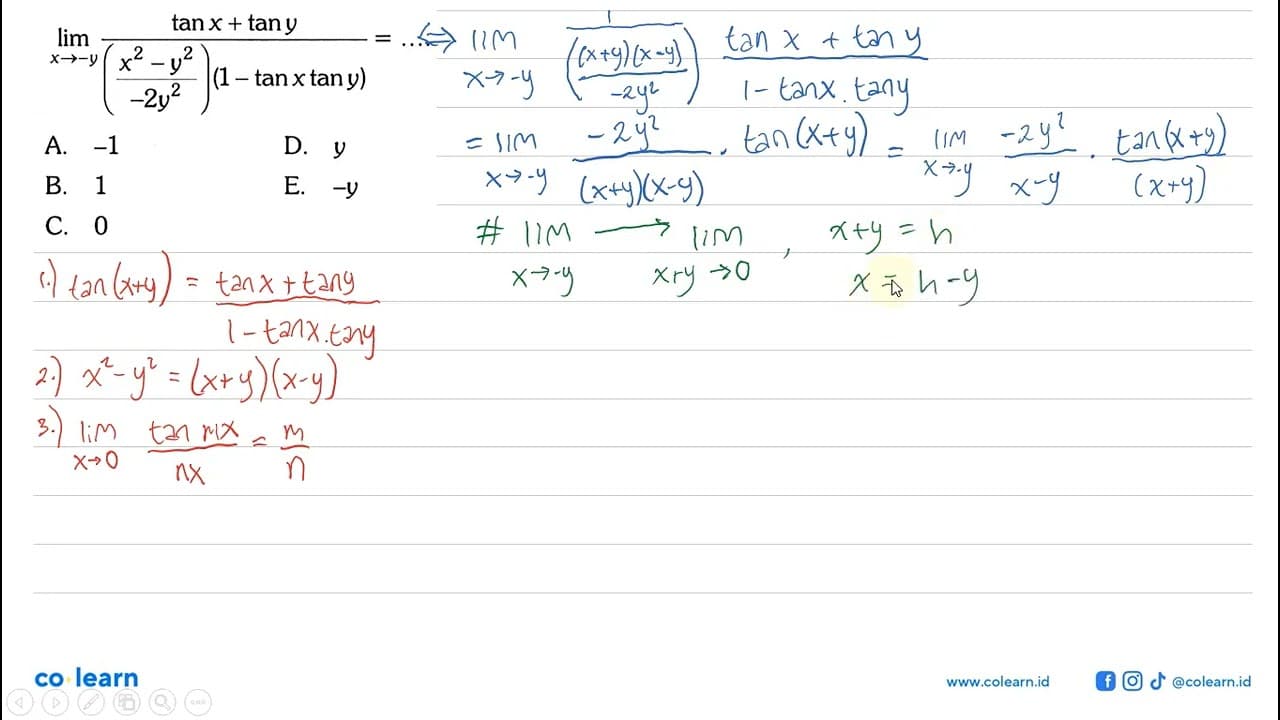 lim x→-y (tan x + tan y) / ((x² – y²)/(–2y²))(1 – tan x tan y) = ...
A. –1
B. 1
C. 0
D. y
E. –y
⇔ lim x→-y 1/((x+y)(x-y)/-2y²) (tan x + tan y)/(1 - tan x . tan y)
= lim x→-y -2y²/((x+y)(x-y)) . tan(x+y) = lim x→-y -2y²/(x-y) . tan(x+y)/(x+y)
# lim x→-y → lim x+y→0 , x+y = h
x = h-y
1.) tan(x+y) = (tan x + tan y)/(1 - tan x . tan y)
2.) x² - y² = (x+y)(x-y)
3.) lim x→0 tan mx/nx = m/n
co learn
www.colearn.id
@colearn.id